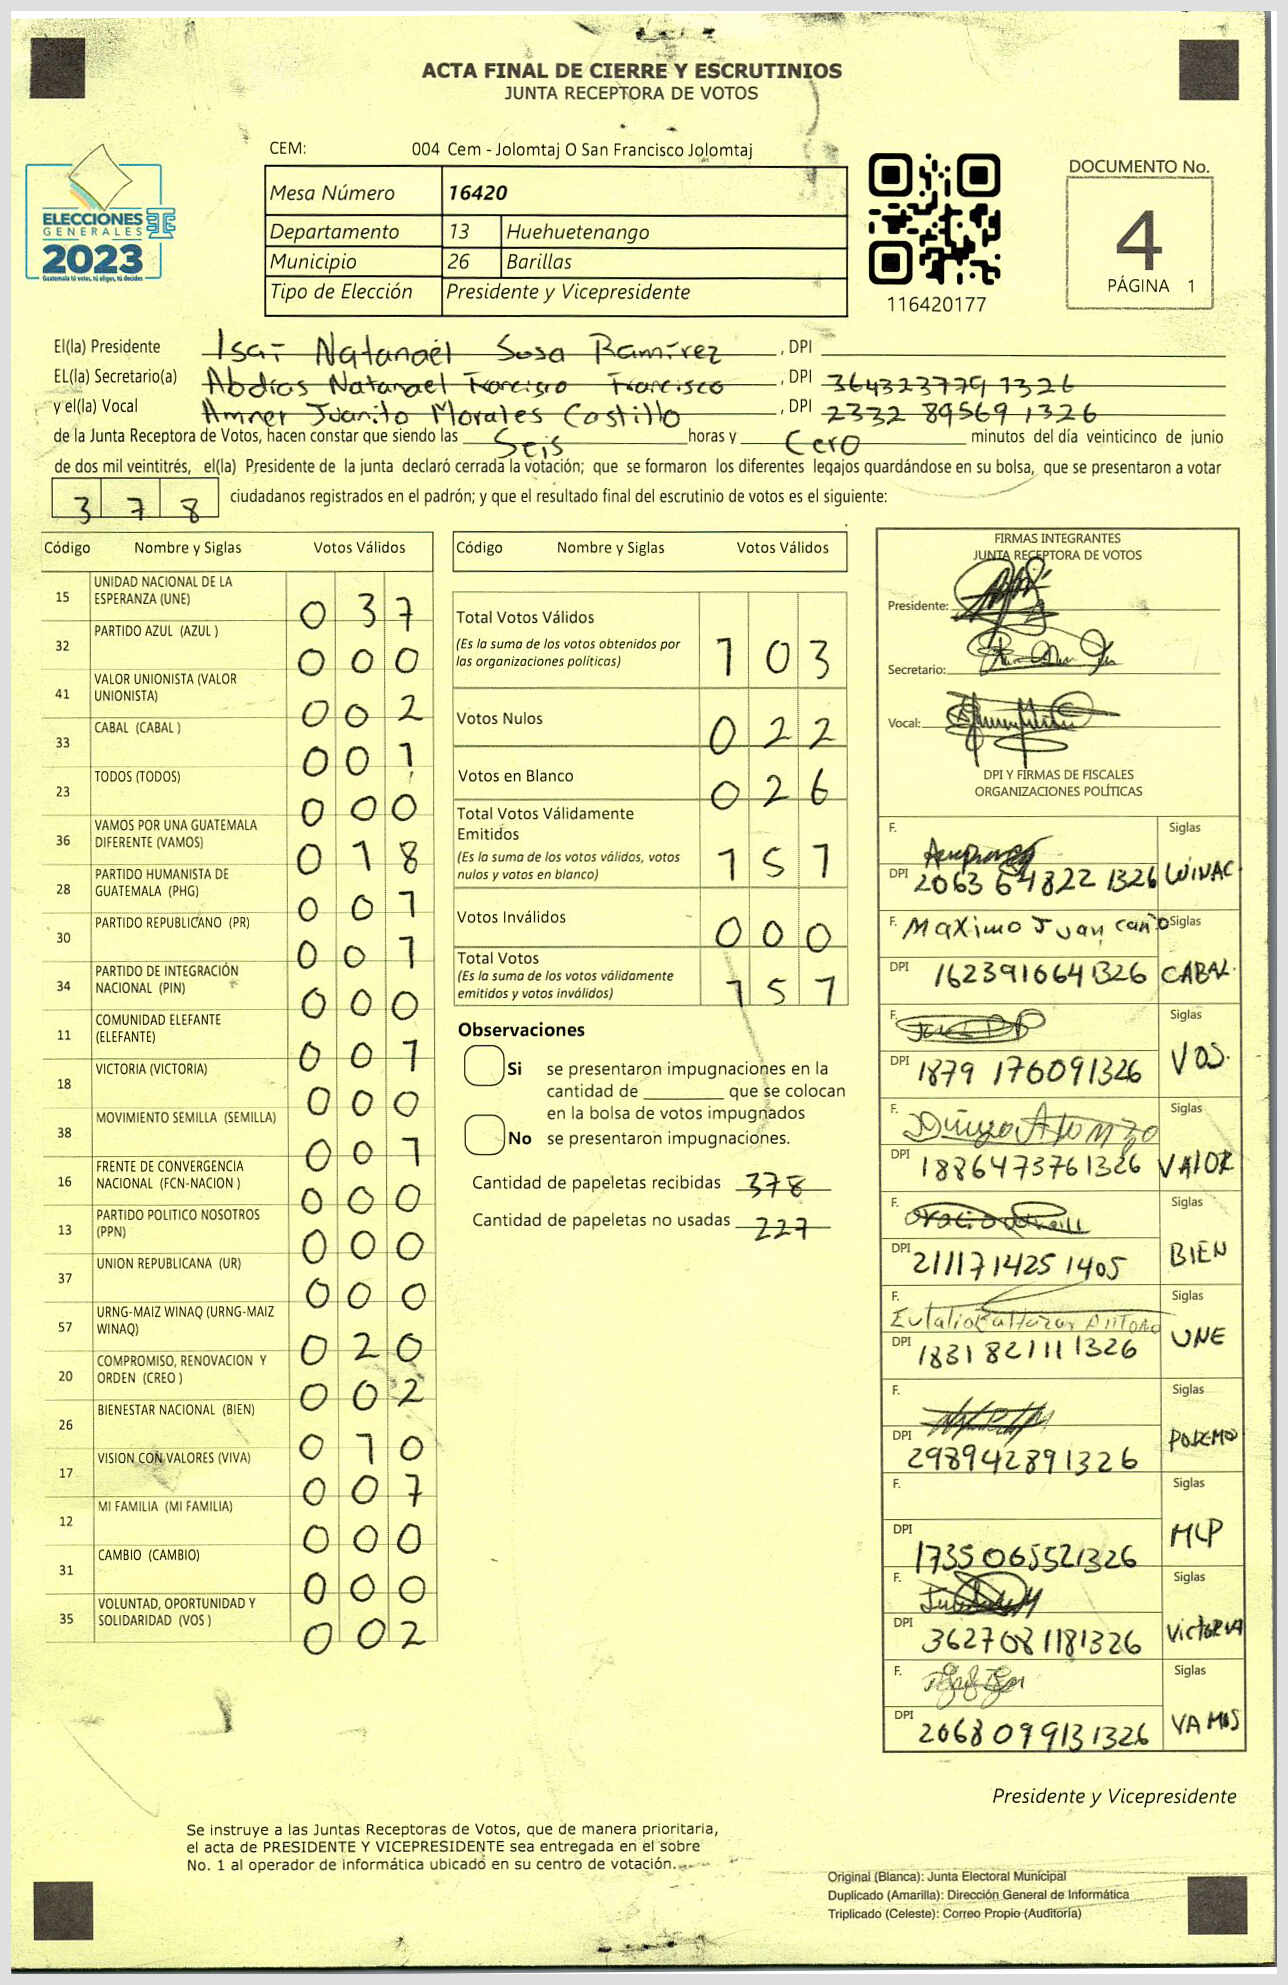 ACTA FINAL DE CIERRE Y ESCRUTINIOS
JUNTA RECEPTORA DE VOTOS
CEM: 004 Cem - Jolomtaj O San Francisco Jolomtaj
Mesa Número 16420
Departamento 13 Huehuetenango
Municipio 26 Barillas
Tipo de Elección Presidente y Vicepresidente
ELECCIONES
GENERALES
2023
Guatemala tú votas, tú eliges, tú decides
116420177
DOCUMENTO No.
4
PÁGINA 1
El(la) Presidente Isaí Natanaél Sosa Ramírez , DPI
EL(la) Secretario(a) Abdías Natanael Francisco Francisco , DPI 364323779 1326
y el(la) Vocal Amner Juanito Morales Castillo , DPI 2332 89569 1326
de la Junta Receptora de Votos, hacen constar que siendo las Seis horas y Cero minutos del día veinticinco de junio
de dos mil veintitrés, el(la) Presidente de la junta declaró cerrada la votación; que se formaron los diferentes legajos guardándose en su bolsa, que se presentaron a votar
3 7 8 ciudadanos registrados en el padrón; y que el resultado final del escrutinio de votos es el siguiente:
Código Nombre y Siglas Votos Válidos
15 UNIDAD NACIONAL DE LA ESPERANZA (UNE) 0 3 7
32 PARTIDO AZUL (AZUL ) 0 0 0
41 VALOR UNIONISTA (VALOR UNIONISTA) 0 0 2
33 CABAL (CABAL ) 0 0 1
23 TODOS (TODOS) 0 0 0
36 VAMOS POR UNA GUATEMALA DIFERENTE (VAMOS) 0 1 8
28 PARTIDO HUMANISTA DE GUATEMALA (PHG) 0 0 1
30 PARTIDO REPUBLICANO (PR) 0 0 1
34 PARTIDO DE INTEGRACIÓN NACIONAL (PIN) 0 0 0
11 COMUNIDAD ELEFANTE (ELEFANTE) 0 0 1
18 VICTORIA (VICTORIA) 0 0 0
38 MOVIMIENTO SEMILLA (SEMILLA) 0 0 1
16 FRENTE DE CONVERGENCIA NACIONAL (FCN-NACION ) 0 0 0
13 PARTIDO POLITICO NOSOTROS (PPN) 0 0 0
37 UNION REPUBLICANA (UR) 0 0 0
57 URNG-MAIZ WINAQ (URNG-MAIZ WINAQ) 0 2 0
20 COMPROMISO, RENOVACION Y ORDEN (CREO ) 0 0 2
26 BIENESTAR NACIONAL (BIEN) 0 1 0
17 VISION CON VALORES (VIVA) 0 0 7
12 MI FAMILIA (MI FAMILIA) 0 0 0
31 CAMBIO (CAMBIO) 0 0 0
35 VOLUNTAD, OPORTUNIDAD Y SOLIDARIDAD (VOS ) 0 0 2
Código Nombre y Siglas Votos Válidos
Total Votos Válidos
(Es la suma de los votos obtenidos por
las organizaciones políticas) 1 0 3
Votos Nulos 0 2 2
Votos en Blanco 0 2 6
Total Votos Válidamente
Emitidos
(Es la suma de los votos válidos, votos
nulos y votos en blanco) 1 5 1
Votos Inválidos 0 0 0
Total Votos
(Es la suma de los votos válidamente
emitidos y votos inválidos) 1 5 1
Observaciones
Si se presentaron impugnaciones en la
cantidad de ________ que se colocan
en la bolsa de votos impugnados
No se presentaron impugnaciones.
Cantidad de papeletas recibidas 378
Cantidad de papeletas no usadas 227
FIRMAS INTEGRANTES
JUNTA RECEPTORA DE VOTOS
Presidente:
Secretario:
Vocal:
DPI Y FIRMAS DE FISCALES
ORGANIZACIONES POLÍTICAS
F. Siglas
DPI 2063 64822 1326 WINAC
F. Maximo Juan Siglas
DPI 162391064 1326 CABAL
F. Siglas
DPI 1879 176091326 VOS.
F. Siglas
DPI 1886473761326 VALOR
F. Siglas
DPI 211171425 1405 BIEN
F. Eulalio Baltazar Siglas
DPI 1831 82111 1326 UNE
F. Siglas
DPI 298942891326 PODEMO
F. Siglas
DPI 1735 065521326 MLP
F. Siglas
DPI 3627081181326 Victoria
F. Siglas
DPI 2068 099131326 VAMOS
Presidente y Vicepresidente
Se instruye a las Juntas Receptoras de Votos, que de manera prioritaria,
el acta de PRESIDENTE Y VICEPRESIDENTE sea entregada en el sobre
No. 1 al operador de informática ubicado en su centro de votación.
Original (Blanca): Junta Electoral Municipal
Duplicado (Amarilla): Dirección General de Informática
Triplicado (Celeste): Correo Propio (Auditoría)